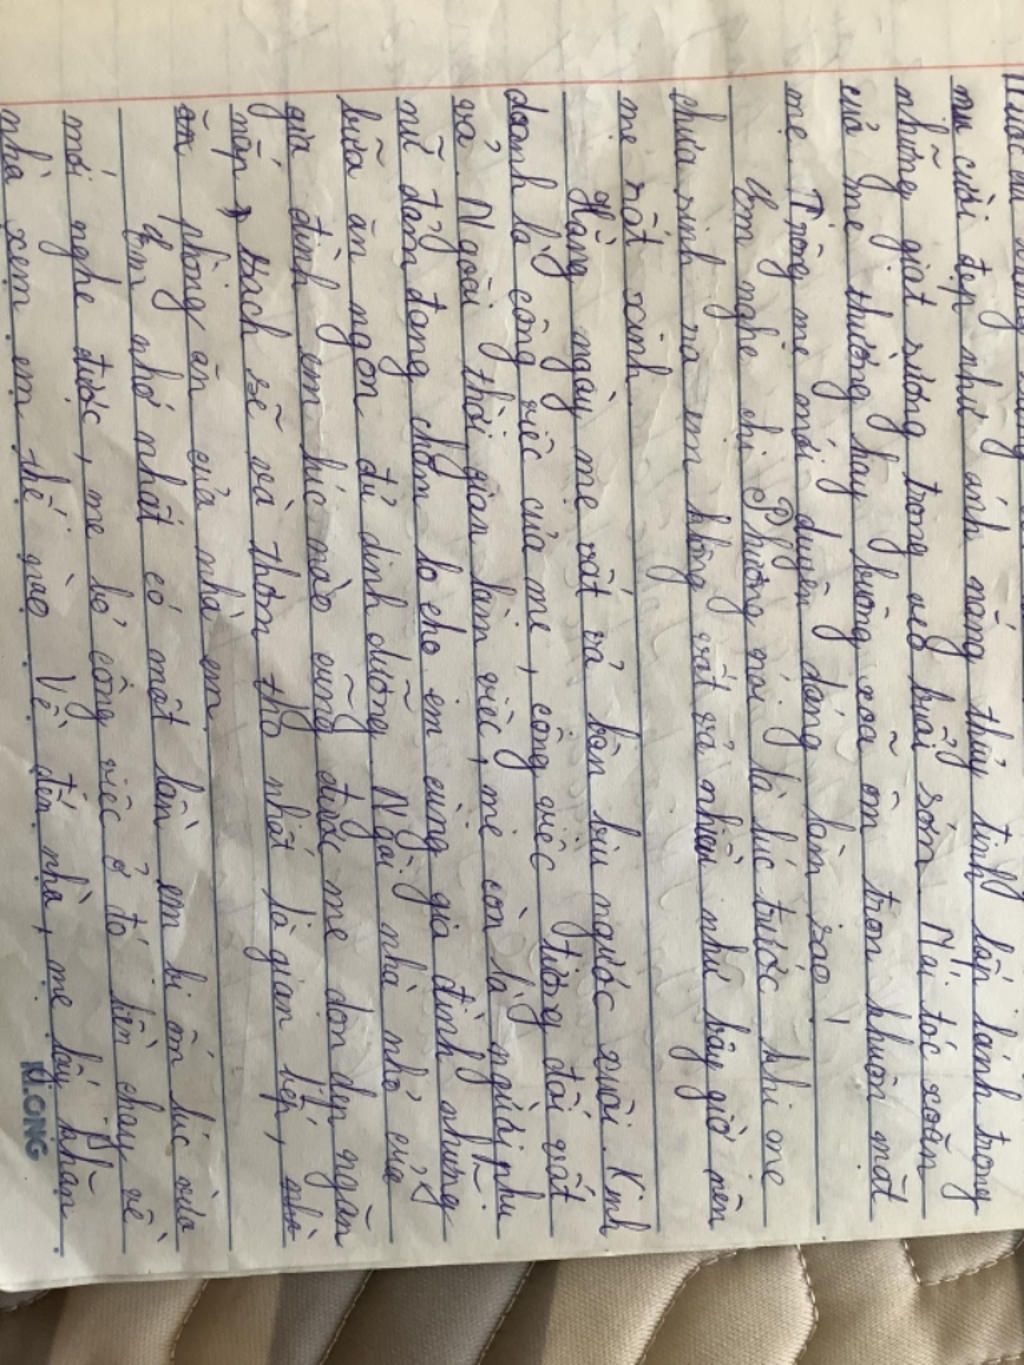 nụ cười đẹp như ánh nắng thủy tinh lấp lánh trong
những giọt sương trong veo buổi sớm. Mái tóc xoăn
của mẹ thường hay buông xoã ôm trọn khuôn mặt
mẹ. Trông mẹ mới duyên dáng làm sao!
Em nghe chị Phương nói là lúc trước khi mẹ
chưa sinh ra em không vất vả nhiều như bây giờ nên
mẹ rất xinh.
Hằng ngày mẹ rất vả bân bịu ngược xuôi. Kinh
doanh là công việc của mẹ, công việc tương đối vất
vả. Ngoài thời gian làm việc, mẹ còn là người phụ
nữ đảm đang chăm lo cho em cùng gia đình những
bữa ăn ngon đủ dinh dưỡng. Ngôi nhà nhỏ của
gia đình em lúc nào cũng được mẹ dọn dẹp ngăn
nắp sạch sẽ và thơm tho nhất là gian bếp,
phòng ăn của nhà em.
Em nhớ nhất có một lần em bị ốm lúc vừa
mới nghe được, mẹ bỏ công việc ở đó liền chạy về
nhà xem em thế nào. Về đến nhà, mẹ lấy khăn
K.ONG